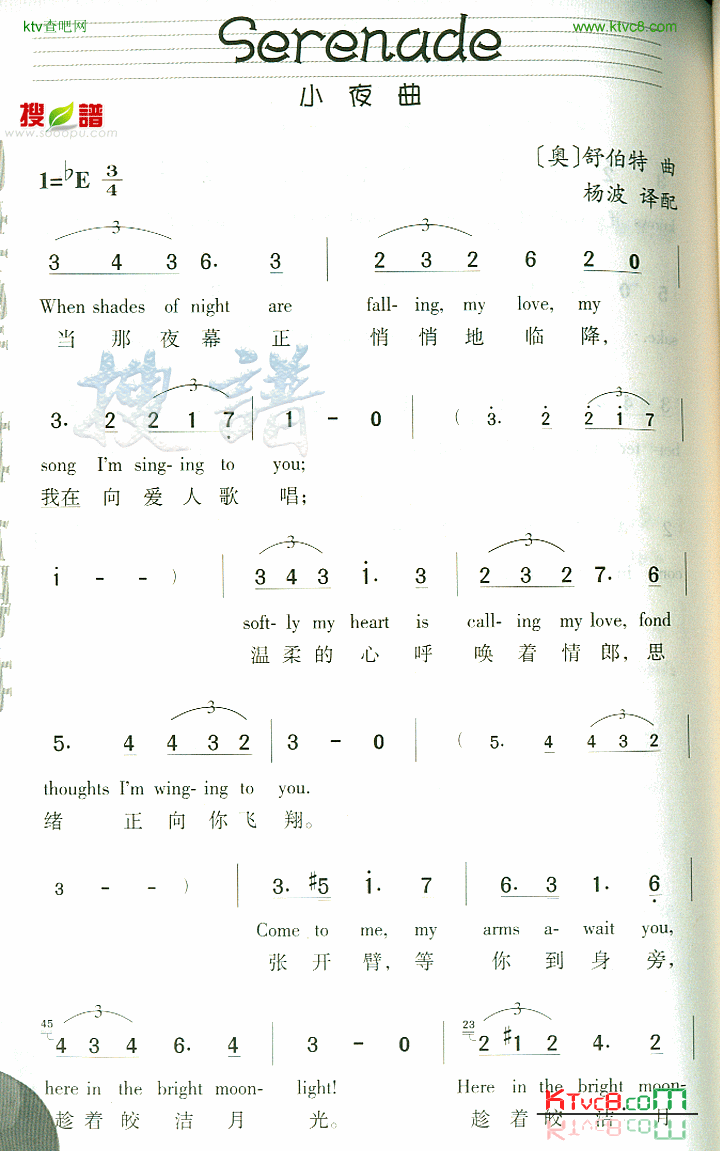 ktv查吧网 www.ktvc8.com
Serenade
小夜曲
搜谱
www.sooopu.com
〔奥〕舒伯特 曲
杨波 译配
1=♭E 3/4
3 4 3 6. 3 | 2 3 2 6 2 0
When shades of night are fall- ing, my love, my
当那夜幕正 悄悄地临降,
3. 2 2 1 7 | 1 - 0 ( 3. 2 2 1 7
song I'm sing- ing to you;
我在向爱人歌唱;
1 - - ) | 3 4 3 1. 3 | 2 3 2 7. 6
soft- ly my heart is call- ing my love, fond
温柔的心呼 唤着情郎,思
5. 4 4 3 2 | 3 - 0 ( 5. 4 4 3 2
thoughts I'm wing- ing to you.
绪正向你飞翔。
3 - - ) | 3. #5 1. 7 | 6. 3 1. 6
Come to me, my arms a- wait you,
张开臂,等 你到身旁,
45 4 3 4 6. 4 | 3 - 0 | 23 2 #1 2 4. 2
here in the bright moon- light! Here in the bright moon-
趁着皎洁月光。 趁着皎洁月
KTvc8.com